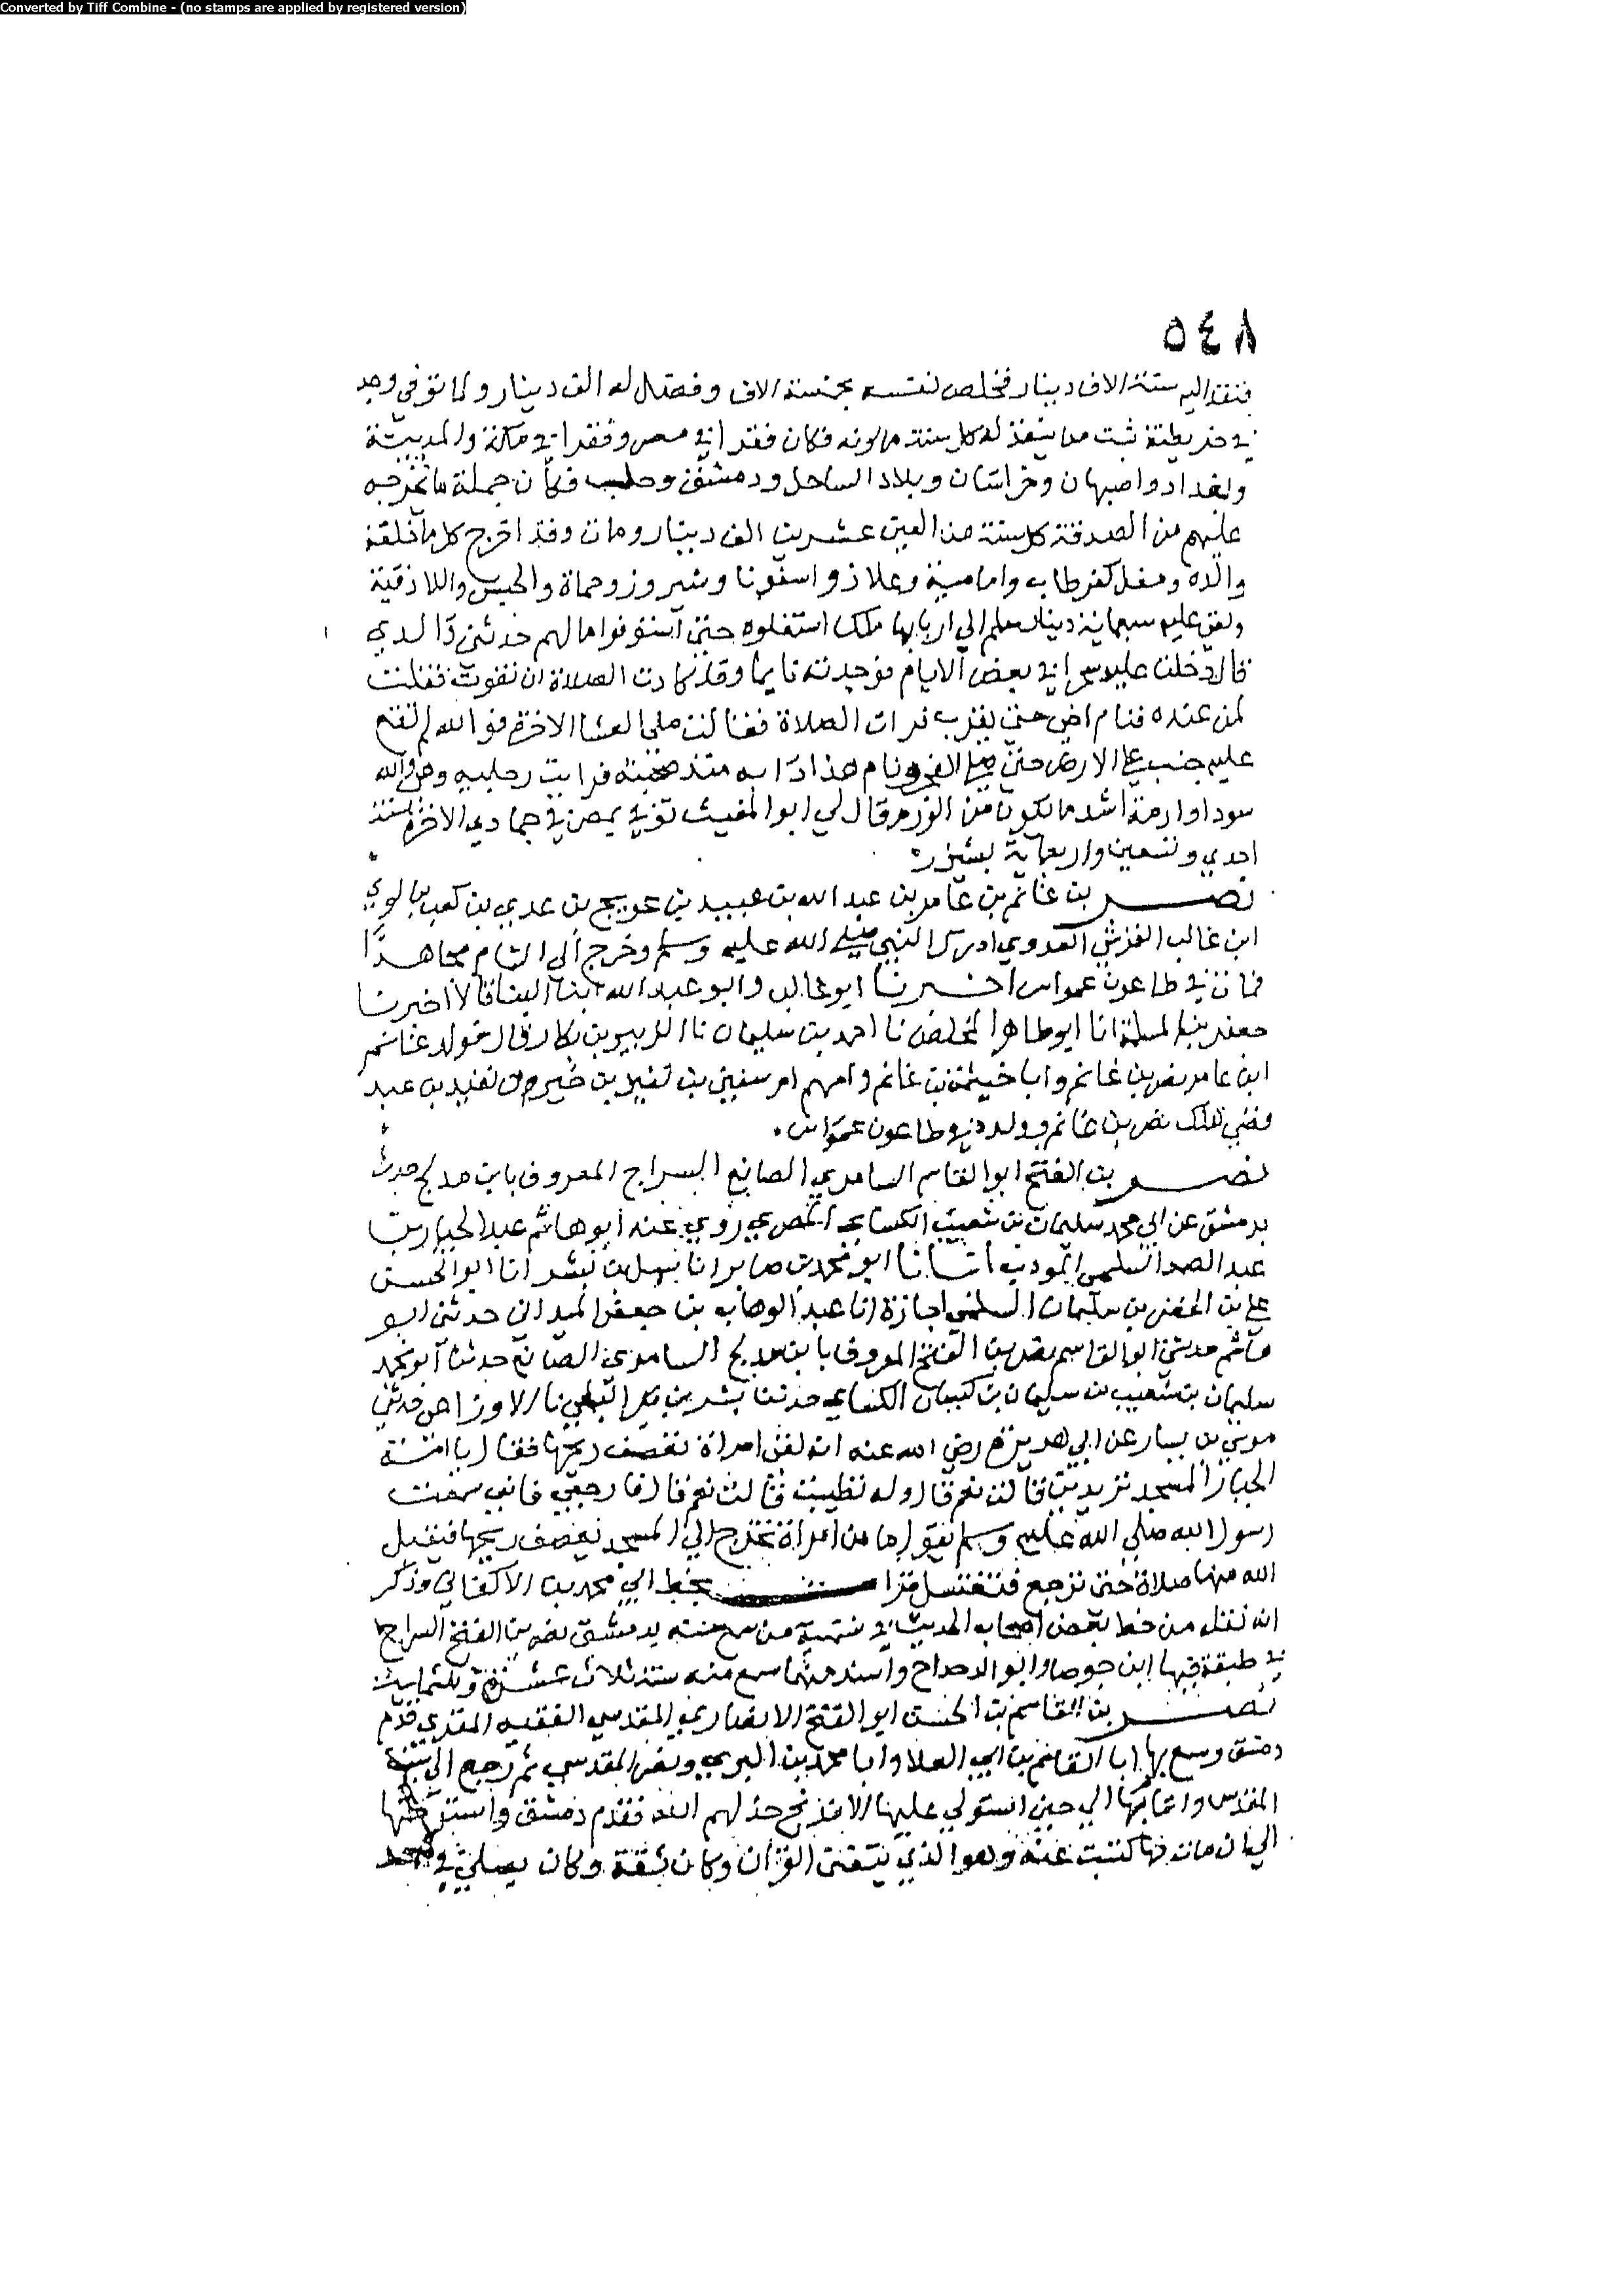 Converted by Tiff Combine - (no stamps are applied by registered version)
٥٤٨
فنفذ اليه ستة الاف دينار فخلص نفسه بخمسة الاف وفضل له الف دينار ولما توفي وجد
في خريطته ثبت ما ينفذ له كل سنة فكان فقراء في مصر وفقراء في مكة والمدينة
وبغداد واصبهان وخراسان وبلاد الساحل ودمشق وحلب فكان جملة ما يخرجه
عليهم من الصدقة كل سنة من العين عشرين الف دينار ومات وقد اخرج كل ما خلفه
والده ومغل كفرطاب وافامية واسفونا وشيزر وحماة والجسر واللاذقية
وبقي عليه سبعماية دينار سلم الي اربابها ملك استغلوه حتى استوفوا مالهم حدثني والدي
قال دخلت عليه سحرا في بعض الايام فوجدته نايما وقد كادت الصلاة ان تفوت فقلت
لمن عنده فنام اخي حتى يقرب فوات الصلاة فقالت صلى العشا الاخرة فوالله لم تقع
عليه جنب على الارض حتى صلى الفجر ونام هذا دابه منذ صحبته فرايت رجليه وهي والله
سودا وارمة اشد ما يكون من الورم قال لي ابو المغيث توفي نصر في جمادي الاخرة سنة
احدي وتسعين واربعماية بشيزر
نصر بن غانم بن عامر بن عبد الله بن عبيد بن عويج بن عدي بن كعب بن لوي
ابن غالب القرشي العدوي ادرك النبي صلى الله عليه وسلم وخرج الى الشام مجاهدا
فمات في طاعون عمواس اخبرنا ابو غالب وابو عبد الله ابنا البنا قالا اخبرنا
جعفر بن المسلمة انا ابو طاهر المخلص نا احمد بن سليمان نا الزبير بن بكار قال فولد غانم
ابن عامر نصر بن غانم وابا خيثمة بن غانم وامهم ام سفين بنت نفيذ بن بجير بن نفيذ بن عبد
قصي هلك نصر بن غانم وولده في طاعون عمواس
نصر بن الفتح ابو القاسم السامري الصايغ السراج المعروف بابن مدلج حدث
بدمشق عن ابي محمد سليمان بن شعيب الكسايي المصري روي عنه ابو هاشم عبد الجبار بن
عبد الصمد السلمي المودب انبانا ابو محمد بن صابر انا سهل بن بشر انا ابو الحسن
علي بن الخضر بن سليمان السلمي اجازة انا عبد الوهاب بن جعفر الميداني حدثني ابو
هاشم حدثني ابو القاسم نصر بن الفتح المعروف بابن مدلج السامري الصايغ حدثنا ابو محمد
سليمان بن شعيب بن سليمان بن كيسان الكسايي حدثنا بشر بن بكر البجلي نا الاوزاعي حدثني
موسي بن يسار عن ابي هريرة رضي الله عنه انه لقي امراة تعصف ريحها فقال يا امة
الجبار المسجد تريدين قالت نعم قال وله تطيبت قالت نعم قال فارجعي فاني سمعت
رسول الله صلي الله عليه وسلم يقول ما من امراة تخرج الي المسجد تعصف ريحها فيقبل
الله منها صلاة حتى ترجع فتغتسل قرات بخط ابي محمد بن الاكفاني وذكر
انه نقله من خط بعض اصحاب الحديث في تسمية من سمع منه بدمشق نصر بن الفتح السراج
في طبقة فيها ابن جوصا وابو الدحداح واسند منهما سمع منه سنة ثلاث عشرة وثلثماية
نصر بن القاسم بن الحسن ابو الفتح الانصاري المقدسي الفقيه المقري قدم
دمشق وسمع بها ابا القاسم بن ابي العلا وابا محمد بن البري ونصر المقدسي ثم رجع الي بيت
المقدس واقام بها الي حين استولي عليها الافرنج خذلهم الله فقدم دمشق واستوطنها
الي ان مات فما كتبت عنه وهو الذي يتقن القران وكان ثقة وكان يصلي في مسجد